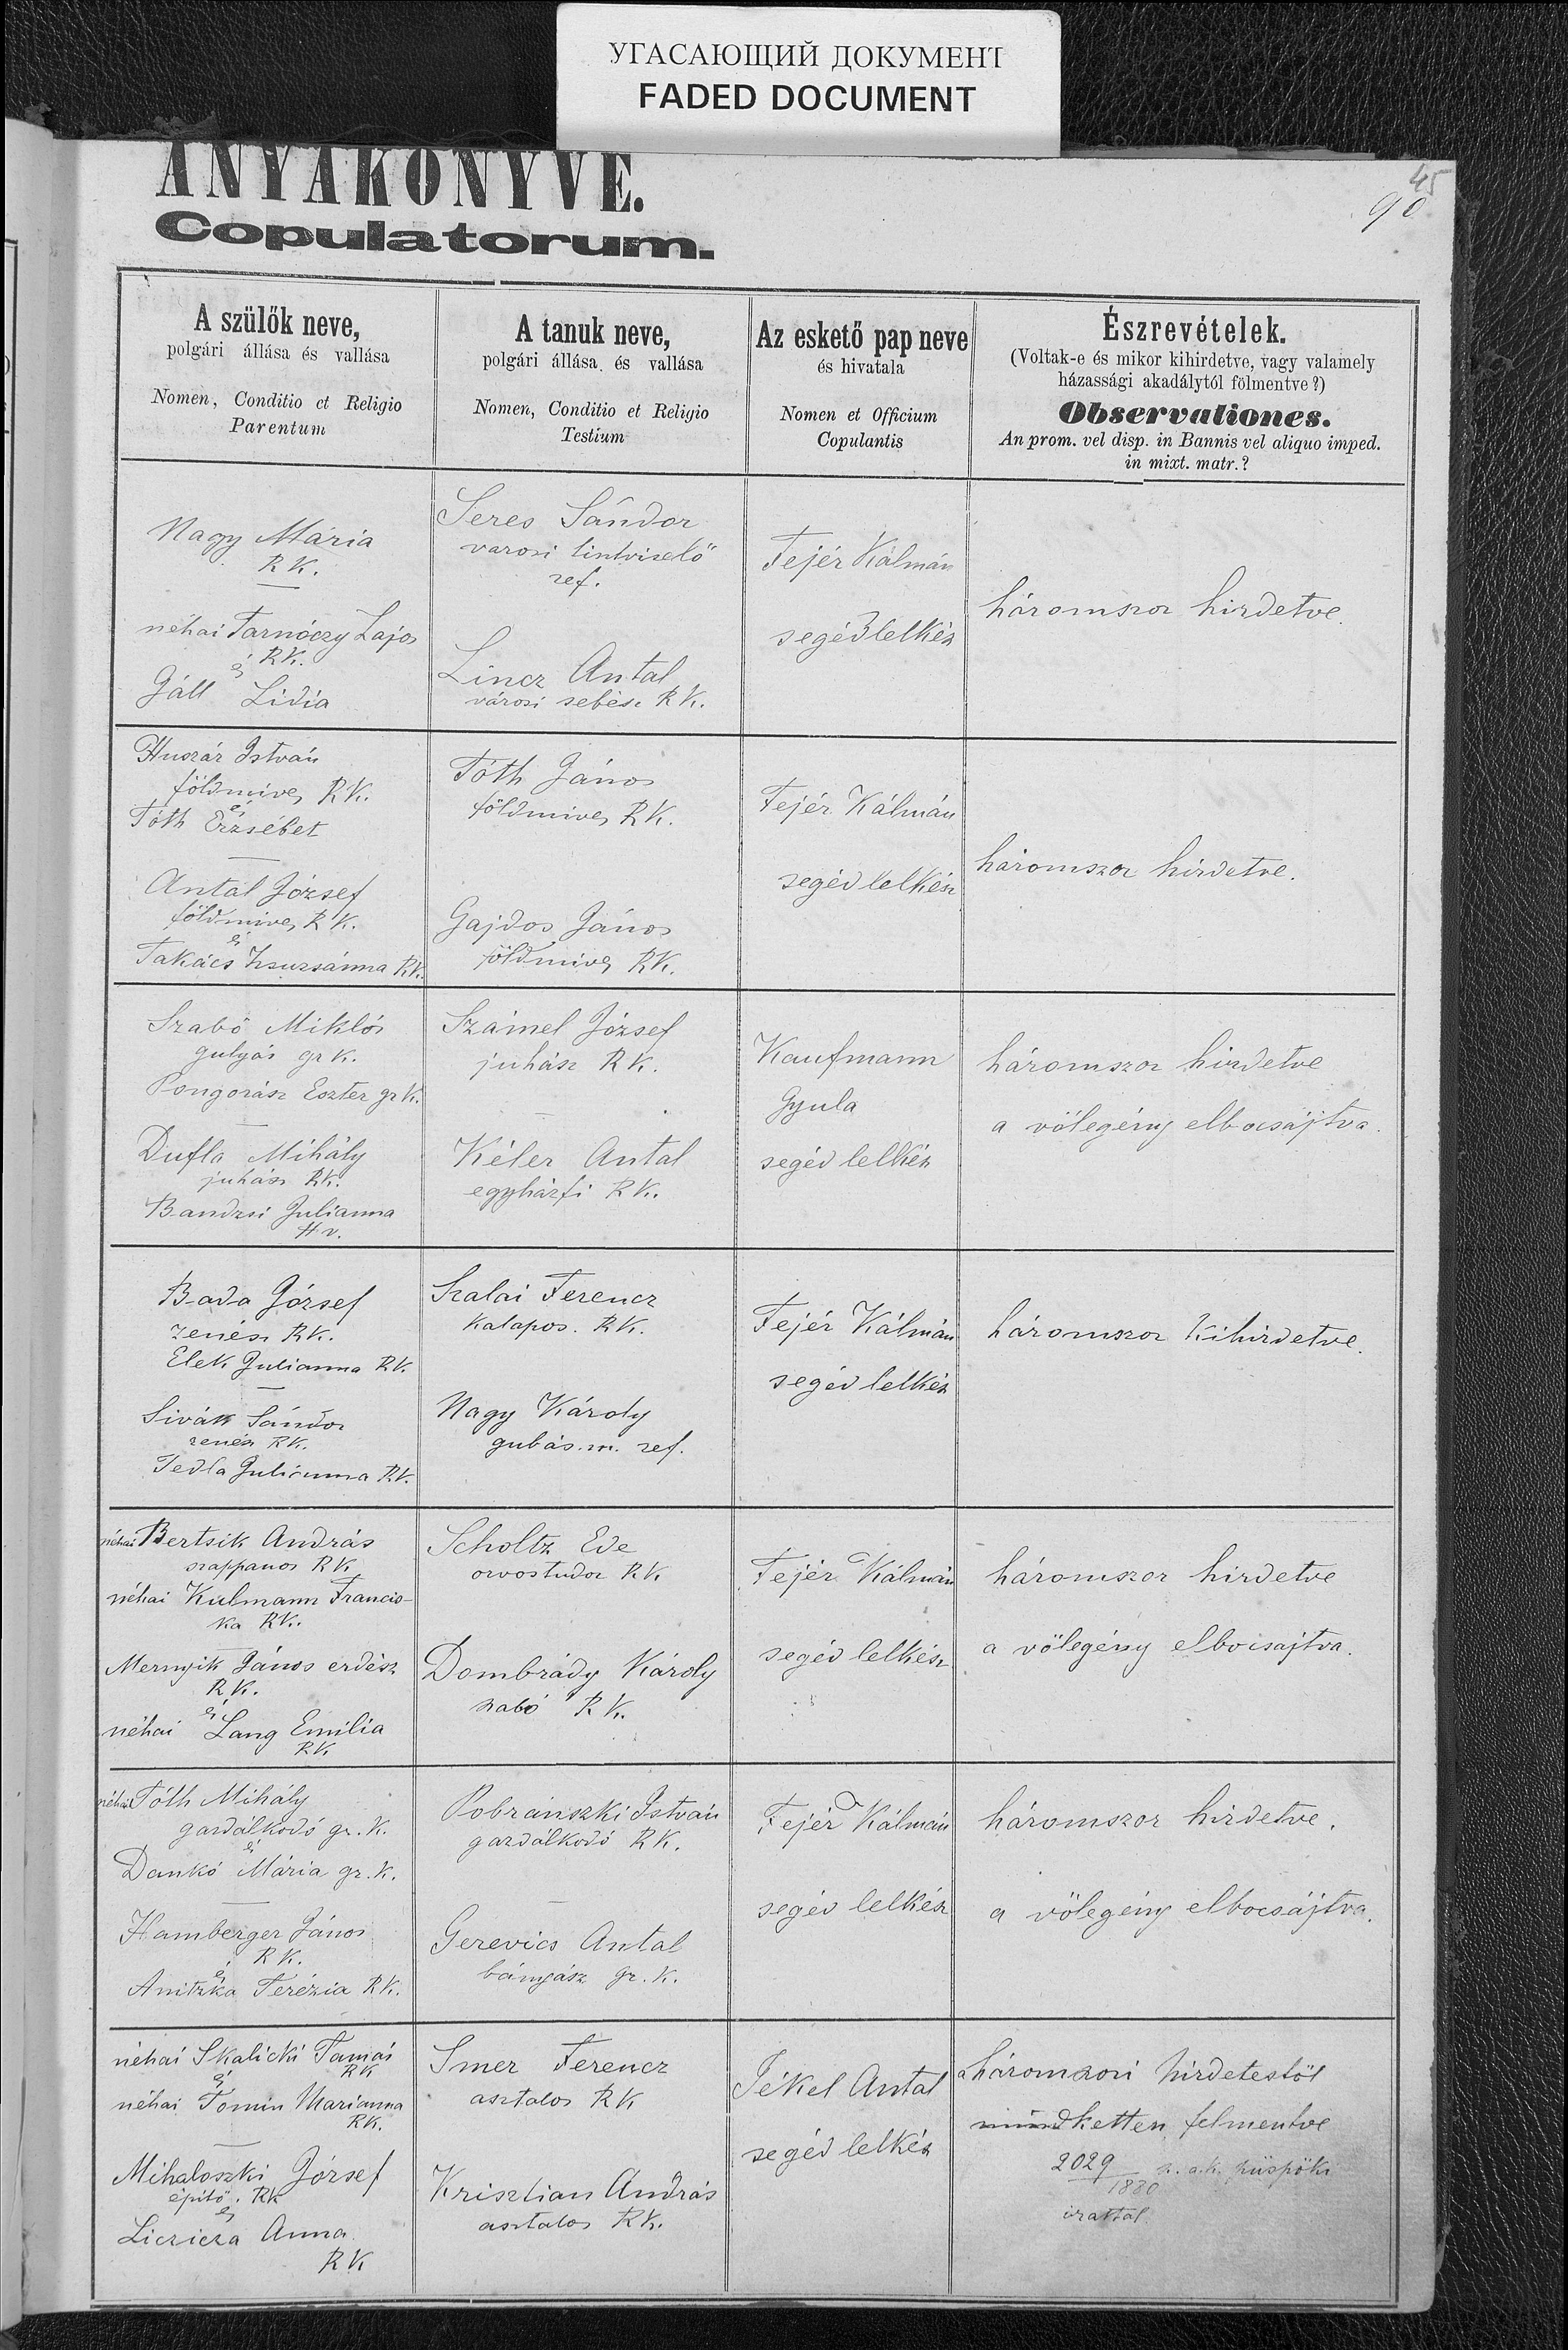 УГАСАЮЩИЙ ДОКУМЕНТ
FADED DOCUMENT
ANYAKÖNYVE.
Copulatorum.
45
90
A szülők neve,
polgári állása és vallása
Nomen, Conditio et Religio
Parentum
A tanuk neve,
polgári állása és vallása
Nomen, Conditio et Religio
Testium
Az eskető pap neve
és hivatala
Nomen et Officium
Copulantis
Észrevételek.
(Voltak-e és mikor kihirdetve, vagy valamely
házassági akadálytól fölmentve?)
Observationes.
An prom. vel disp. in Bannis vel aliquo imped.
in mixt. matr.?
Nagy Mária
RK.
néhai Tarnóczy Lajos
RK.
és
Gáll Lidia
Seres Sándor
varosi tintviselő
ref.
Lincz Antal
városi sebész RK.
Fejér Kálmán
segédlelkész
háromszor hirdetve.
Huszár István
földmives RK.
és
Tóth Erzsébet
Antal József
földmives RK.
és
Takács Zsuzsánna RK.
Tóth János
földmives RK.
Gajdos János
földmives RK.
Fejér Kálmán
segéd lelkész
háromszor hirdetve.
Szabó Miklós
gulyás gr K.
Pongorász Eszter gr K.
Dufla Mihály
juhász RK.
Bandzsi Julianna
Hv.
Számel József
juhász RK.
Kéler Antal
egyházfi RK.
Kaufmann
Gyula
segéd lelkész
háromszor hirdetve
a völegény elbocsájtva.
Bada József
zenész RK.
Elek Julianna RK.
Sivák Sándor
zenész RK.
Tedla Julianna RK.
Szalai Ferencz
Kalapos. RK.
Nagy Károly
gubás. m. ref.
Fejér Kálmán
segéd lelkész
háromszor Kihirdetve.
néhai Bertsik András
szappanos RK.
néhai Kulmann Francis-
ka RK.
Mernyik János erdész
RK.
és
néhai Lang Emilia
RK.
Scholtz Ede
orvostudor RK.
Dombrády Károly
szabó RK.
Fejér Kálmán
segéd lelkész
háromszor hirdetve
a völegény elbocsajtva.
néhai Tóth Mihály
gazdálkodó gr. K.
és
Dankó Mária gr. K.
Hamberger János
RK.
és
Anitzka Terézia RK.
Pobránszki István
gazdálkodó RK.
Gerevics Antal
bányász gr. K.
Fejér Kálmán
segéd lelkész
háromszor hirdetve.
a völegény elbocsájtva.
néhai Skalicki Tamás
RK
és
néhai Tomin Marianna
RK.
Mihaloszki József
épitő. RK
és
Liczicza Anna
RK
Smer Ferencz
asztalos RK
Krisztian András
asztalos RK.
Jékel Antal
segéd lelkész
a háromszori hirdetestől
mindketten felmentve
2029
1880
püspöki
irattal.